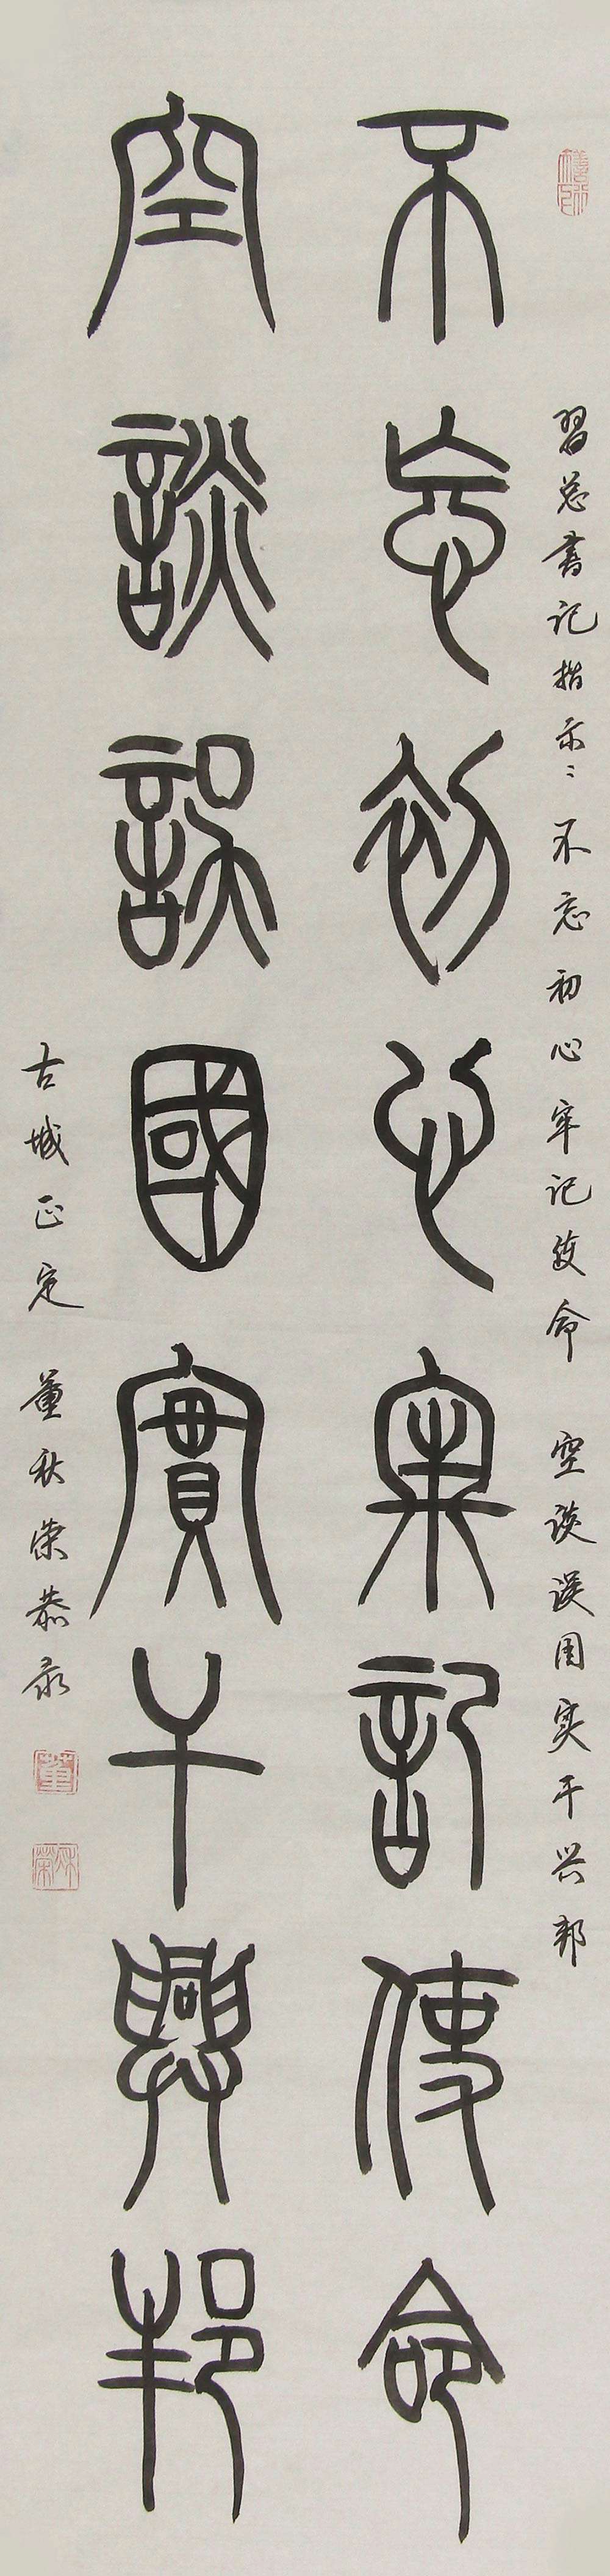 習总書记指示：不忘初心牢记使命 空谈误国实干兴邦
不忘初心牢記使命
空談誤國實干興邦
古城正定 董秋荣恭录